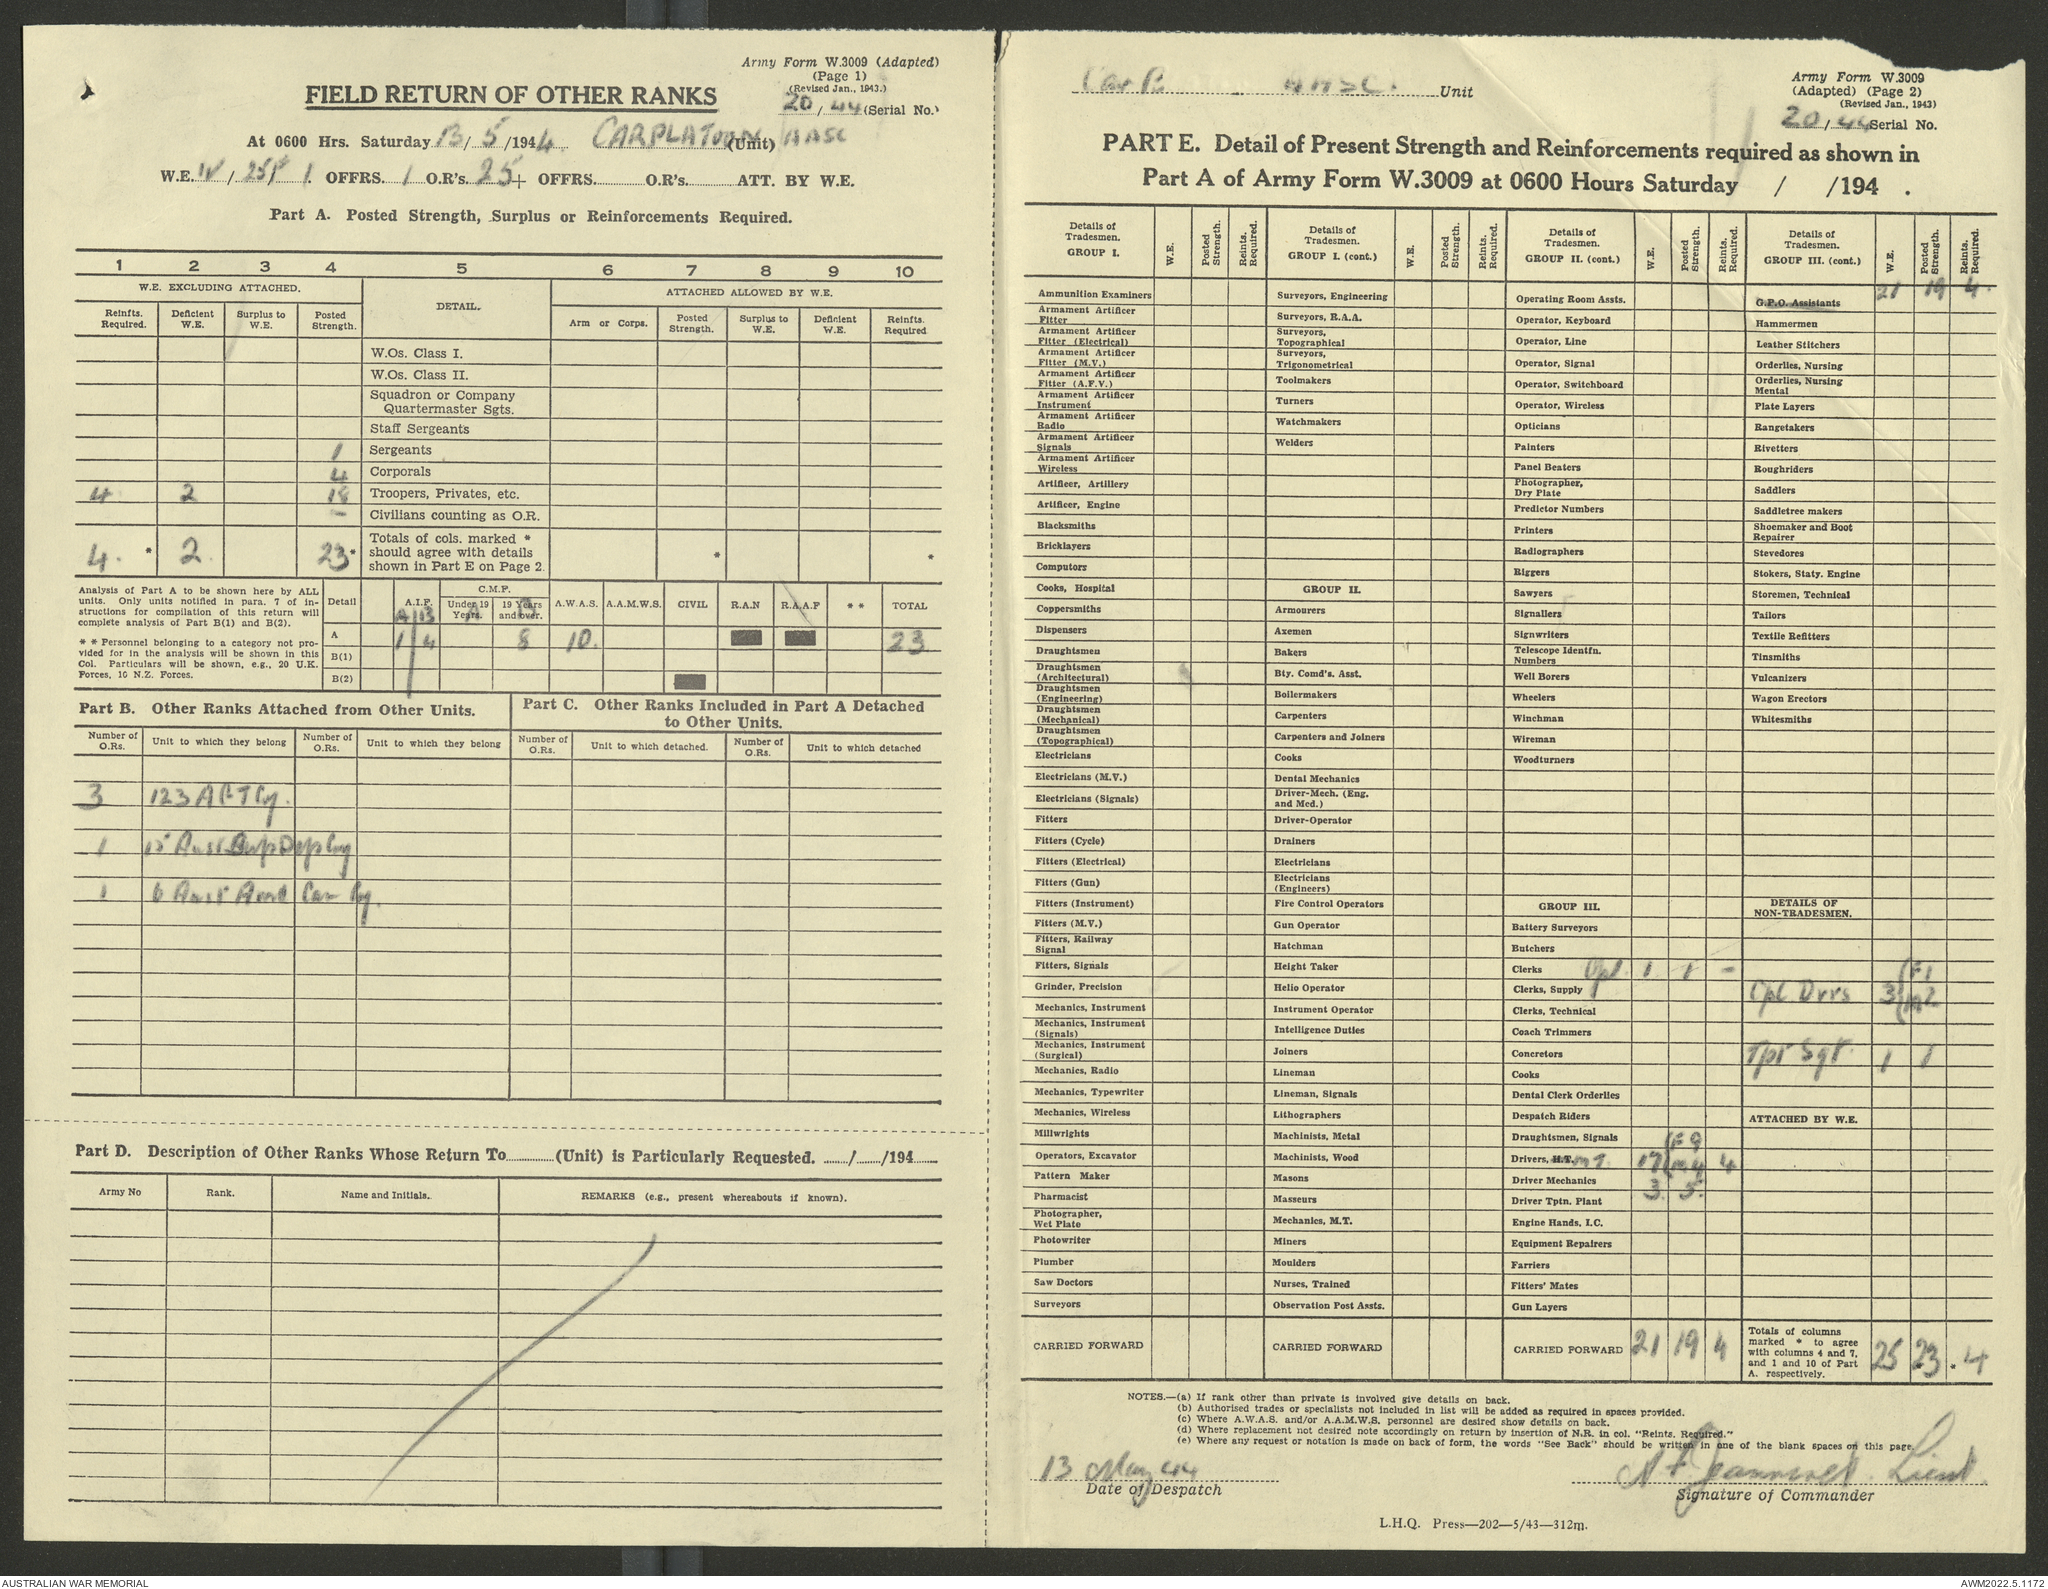 Army Form W.3009 (Adapted)
(Page 1)
(Revised Jan., 1943.)
20/44 (Serial No.)
FIELD RETURN OF OTHER RANKS
At 0600 Hrs. Saturday 13/5/1944 CAR PLATOON (Unit) AASC
W.E. / OFFRS. 1 O.R's. 25 + OFFRS. O.R's. ATT. BY W.E.
Part A. Posted Strength, Surplus or Reinforcements Required.
1 2 3 4 5 6 7 8 9 10
W.E. EXCLUDING ATTACHED. DETAIL. ATTACHED ALLOWED BY W.E.
Reinfts. Required. Deficient W.E. Surplus to W.E. Posted Strength. Arm or Corps. Posted Strength. Surplus to W.E. Deficient W.E. Reinfts. Required
W.Os. Class I.
W.Os. Class II.
Squadron or Company
Quartermaster Sgts.
Staff Sergeants
1 Sergeants
4 Corporals
4 2 18 Troopers, Privates, etc.
- Civilians counting as O.R.
4. * 2. 23 * Totals of cols. marked * should agree with details shown in Part E on Page 2. * *
Analysis of Part A to be shown here by ALL
units. Only units notified in para. 7 of in-
structions for compilation of this return will
complete analysis of Part B(1) and B(2).
* * Personnel belonging to a category not pro-
vided for in the analysis will be shown in this
Col. Particulars will be shown, e.g., 20 U.K.
Forces, 10 N.Z. Forces.
Detail A.I.F. C.M.F. Under 19 Years. 19 Years and over. A.W.A.S. A.A.M.W.S. CIVIL R.A.N R.A.A.F * * TOTAL
A B A B
A 1 4 8 10. 23
B(1)
B(2)
Part B. Other Ranks Attached from Other Units.
Part C. Other Ranks Included in Part A Detached
to Other Units.
Number of O.Rs. Unit to which they belong Number of O.Rs. Unit to which they belong Number of O.Rs. Unit to which detached. Number of O.Rs. Unit to which detached
3 123 A G T Coy.
1 15 Aust Sup Dep Coy
1 6 Aust Amb Car Coy.
Part D. Description of Other Ranks Whose Return To (Unit) is Particularly Requested. / /194
Army No Rank. Name and Initials. REMARKS (e.g., present whereabouts if known).
Car Pl AASC. Unit
Army Form W.3009
(Adapted) (Page 2)
(Revised Jan., 1943)
20/44 Serial No.
PART E. Detail of Present Strength and Reinforcements required as shown in
Part A of Army Form W.3009 at 0600 Hours Saturday / /194 .
Details of Tradesmen. GROUP I. W.E. Posted Strength. Reints. Required.
Ammunition Examiners
Armament Artificer Fitter
Armament Artificer Fitter (Electrical)
Armament Artificer Fitter (M.V.)
Armament Artificer Fitter (A.F.V.)
Armament Artificer Instrument
Armament Artificer Radio
Armament Artificer Signals
Armament Artificer Wireless
Artificer, Artillery
Artificer, Engine
Blacksmiths
Bricklayers
Computors
Cooks, Hospital
Coppersmiths
Dispensers
Draughtsmen
Draughtsmen (Architectural)
Draughtsmen (Engineering)
Draughtsmen (Mechanical)
Draughtsmen (Topographical)
Electricians
Electricians (M.V.)
Electricians (Signals)
Fitters
Fitters (Cycle)
Fitters (Electrical)
Fitters (Gun)
Fitters (Instrument)
Fitters (M.V.)
Fitters, Railway Signal
Fitters, Signals
Grinder, Precision
Mechanics, Instrument
Mechanics, Instrument (Signals)
Mechanics, Instrument (Surgical)
Mechanics, Radio
Mechanics, Typewriter
Mechanics, Wireless
Millwrights
Operators, Excavator
Pattern Maker
Pharmacist
Photographer, Wet Plate
Photowriter
Plumber
Saw Doctors
Surveyors
CARRIED FORWARD
Details of Tradesmen. GROUP I. (cont.) W.E. Posted Strength. Reints. Required.
Surveyors, Engineering
Surveyors, R.A.A.
Surveyors, Topographical
Surveyors, Trigonometrical
Toolmakers
Turners
Watchmakers
Welders
GROUP II.
Armourers
Axemen
Bakers
Bty. Comd's. Asst.
Boilermakers
Carpenters
Carpenters and Joiners
Cooks
Dental Mechanics
Driver-Mech. (Eng. and Mcd.)
Driver-Operator
Drainers
Electricians
Electricians (Engineers)
Fire Control Operators
Gun Operator
Hatchman
Height Taker
Helio Operator
Instrument Operator
Intelligence Duties
Joiners
Lineman
Lineman, Signals
Lithographers
Machinists, Metal
Machinists, Wood
Masons
Masseurs
Mechanics, M.T.
Miners
Moulders
Nurses, Trained
Observation Post Assts.
CARRIED FORWARD
Details of Tradesmen. GROUP II. (cont.) W.E. Posted Strength. Reints. Required.
Operating Room Assts.
Operator, Keyboard
Operator, Line
Operator, Signal
Operator, Switchboard
Operator, Wireless
Opticians
Painters
Panel Beaters
Photographer, Dry Plate
Predictor Numbers
Printers
Radiographers
Riggers
Sawyers
Signallers
Signwriters
Telescope Identfn. Numbers
Well Borers
Wheelers
Winchman
Wireman
Woodturners
GROUP III.
Battery Surveyors
Butchers
Clerks Cpl. 1 1 -
Clerks, Supply
Clerks, Technical
Coach Trimmers
Concretors
Cooks
Dental Clerk Orderlies
Despatch Riders
Draughtsmen, Signals
Drivers, H.T. M.T. 17 (F 9 (M 4 4
Driver Mechanics 3 5
Driver Tptn. Plant
Engine Hands, I.C.
Equipment Repairers
Farriers
Fitters' Mates
Gun Layers
CARRIED FORWARD 21 19 4
Details of Tradesmen. GROUP III. (cont.) W.E. Posted Strength. Reints. Required.
21 19 4.
G.P.O. Assistants
Hammermen
Leather Stitchers
Orderlies, Nursing
Orderlies, Nursing Mental
Plate Layers
Rangetakers
Rivetters
Roughriders
Saddlers
Saddletree makers
Shoemaker and Boot Repairer
Stevedores
Stokers, Staty. Engine
Storemen, Technical
Tailors
Textile Refitters
Tinsmiths
Vulcanizers
Wagon Erectors
Whitesmiths
DETAILS OF NON-TRADESMEN.
Cpl. Dvrs 3 (F 1 (M 2
Tpt Sgt. 1 1
ATTACHED BY W.E.
Totals of columns marked * to agree with columns 4 and 7, and 1 and 10 of Part A. respectively. 25 23 * 4
NOTES.—(a) If rank other than private is involved give details on back.
(b) Authorised trades or specialists not included in list will be added as required in spaces provided.
(c) Where A.W.A.S. and/or A.A.M.W.S. personnel are desired show details on back.
(d) Where replacement not desired note accordingly on return by insertion of N.R. in col. "Reints. Required."
(e) Where any request or notation is made on back of form, the words "See Back" should be written in one of the blank spaces on this page.
13 May 44
Date of Despatch
Lieut.
Signature of Commander
L.H.Q. Press—202—5/43—312m.
AUSTRALIAN WAR MEMORIAL
AWM2022.5.1172